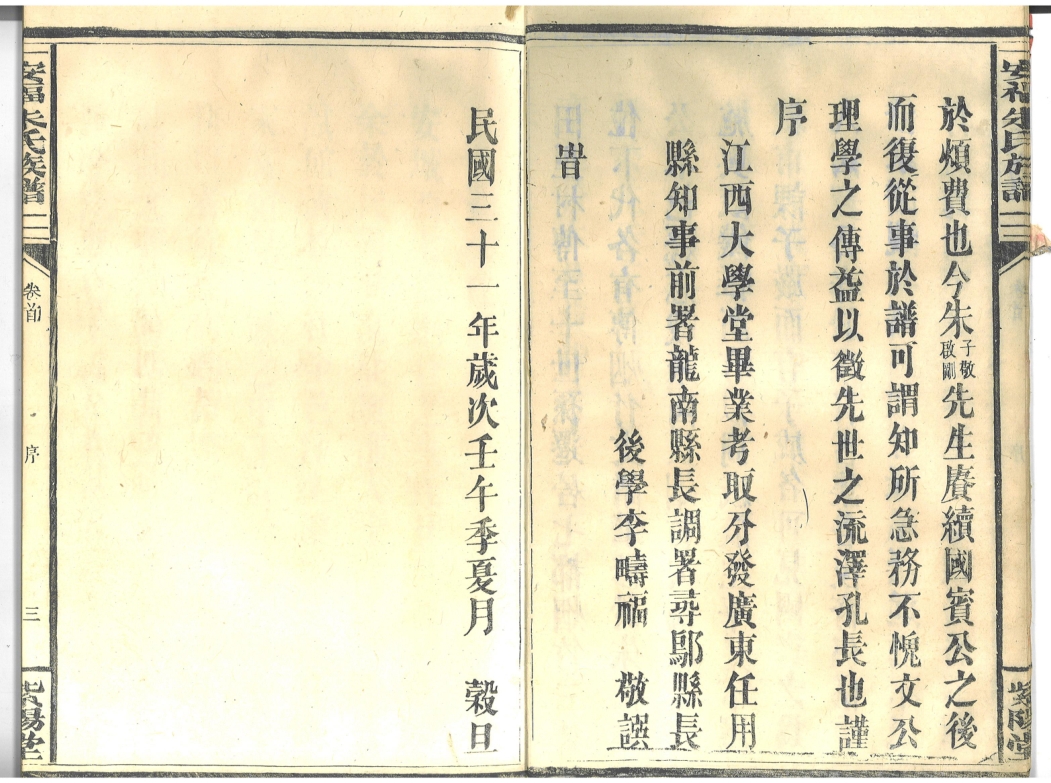 安福朱氏族譜
於煩費也今朱子敬啟剛先生賡續國賓公之後
而復從事於譜可謂知所急務不愧文公
理學之傳益以徵先世之流澤孔長也謹
序
江西大學堂畢業考取分發廣東任用
縣知事前署龍南縣長調署尋鄔縣長
後學李疇福 敬譔
旹
民國三十一年歲次壬午季夏月 穀旦
安福朱氏族譜
卷首
序
三
紫陽堂